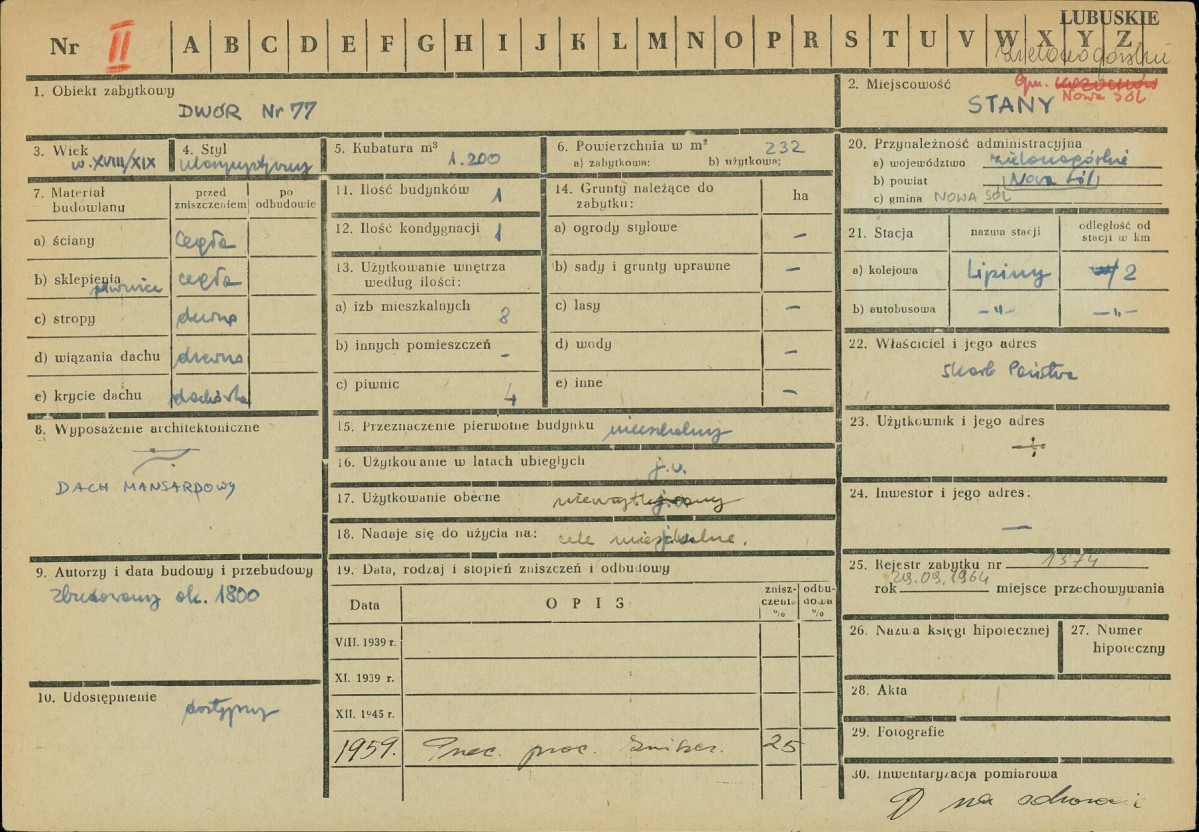 LUBUSKIE
Nr II A B C D E F G H I J K L M N O P R S T U V W X Y Z
zielonogórskie
1. Obiekt zabytkowy
DWÓR Nr 77
2. Miejscowość gm. Kożuchów
Nowa Sól
STANY
3. Wiek
w. XVIII/XIX
4. Styl
klasycystyczny
5. Kubatura m³
1.200
6. Powierzchnia w m² 232
a) zabytkowa: b) użytkowa:
7. Materiał budowlany
przed zniszczeniem
po odbudowie
a) ściany cegła
b) sklepienia piwnice cegła
c) stropy drewno
d) wiązania dachu drewno
e) krycie dachu dachówka
8. Wyposażenie architektoniczne
DACH MANSARDOWY
9. Autorzy i data budowy i przebudowy
Zbudowany ok. 1800
10. Udostępnienie
dostępny
11. Ilość budynków 1
12. Ilość kondygnacji 1
13. Użytkowanie wnętrza
według ilości:
a) izb mieszkalnych 8
b) innych pomieszczeń -
c) piwnic 4
14. Grunty należące do
zabytku:
ha
a) ogrody stylowe –
b) sady i grunty uprawne –
c) lasy –
d) wody –
e) inne –
15. Przeznaczenie pierwotne budynku mieszkalny
16. Użytkowanie w latach ubiegłych j.w.
17. Użytkowanie obecne
18. Nadaje się do użycia na: cele mieszkalne.
19. Data, rodzaj i stopień zniszczeń i odbudowy
Data
OPIS
znisz-
czenia
%
odbu-
dowa
%
VIII. 1939 r.
XI. 1939 r.
XII. 1945 r.
1959. 25
20. Przynależność administracyjna
a) województwo zielonogórskie
b) powiat Nowa Sól
c) gmina NOWA SÓL
21. Stacja
nazwa stacji
odległość od
stacji w km
a) kolejowa Lipiny 2
b) autobusowa –"– –"–
22. Właściciel i jego adres
Skarb Państwa
23. Użytkownik i jego adres
24. Inwestor i jego adres:
–
25. Rejestr zabytku nr 1374
rok 29.09.1964 miejsce przechowywania
26. Nazwa księgi hipotecznej
27. Numer
hipoteczny
28. Akta
29. Fotografie
30. Inwentaryzacja pomiarowa
na odwrocie